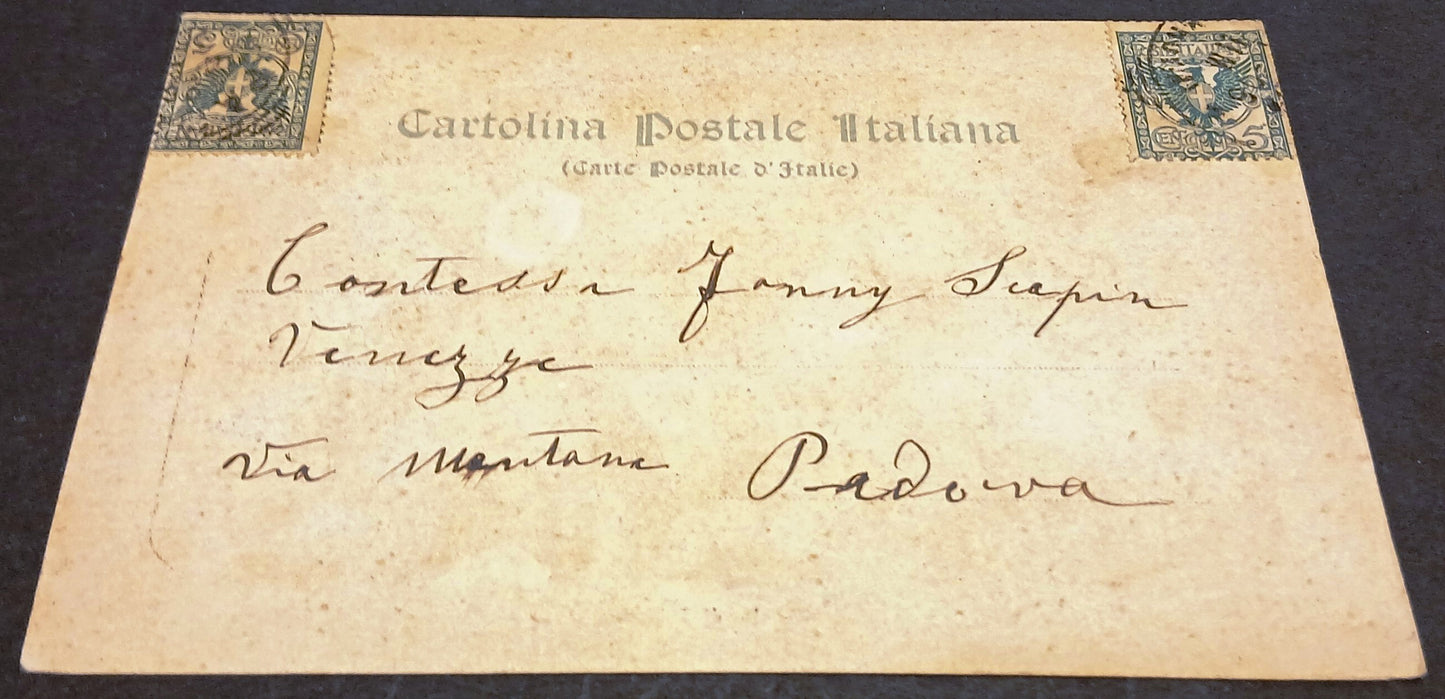 Cartolina Postale Italiana
(Carte Postale d'Italie)
5
5
Contessa Fanny Scapin
Venezze
Via Mentana Padova